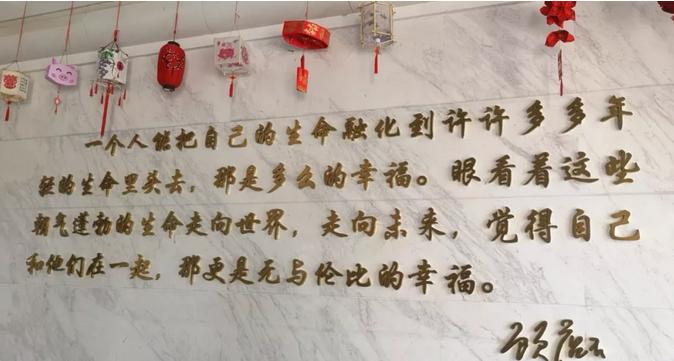 一个人能把自己的生命融化到许许多多年
轻的生命里头去，那是多么的幸福。眼看着这些
朝气蓬勃的生命走向世界，走向未来，觉得自己
和他们在一起，那更是无与伦比的幸福。